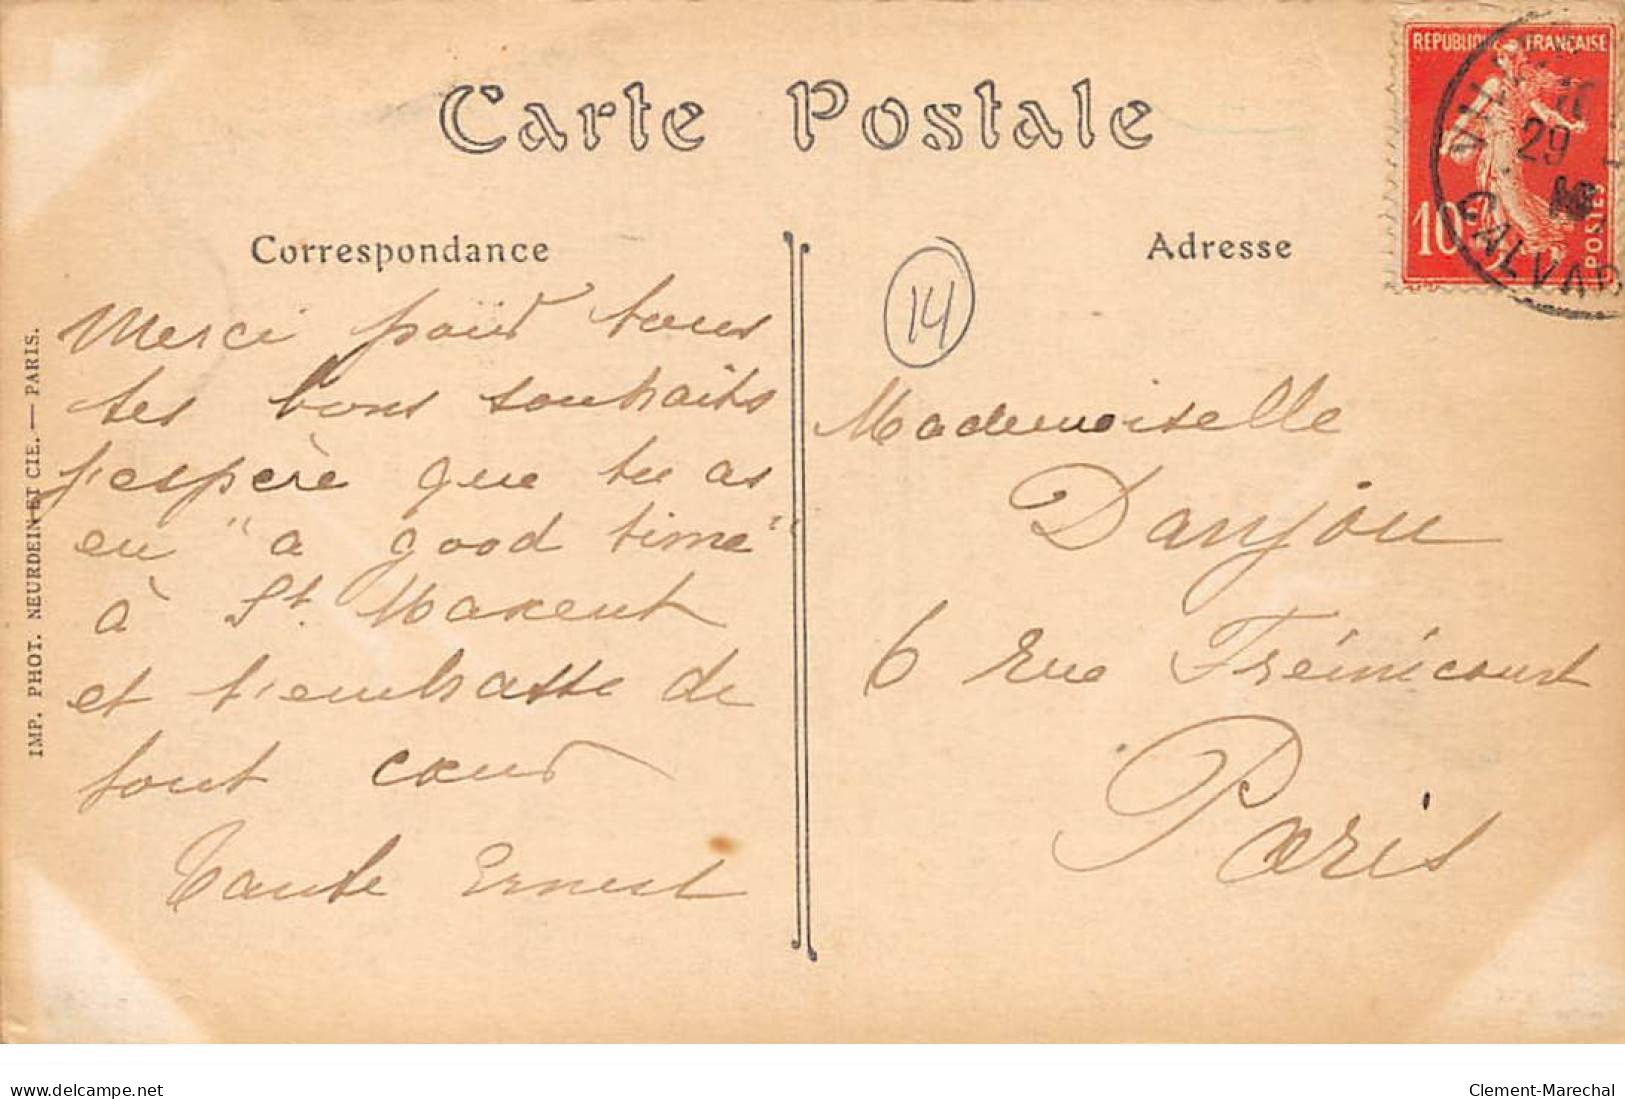 Carte Postale
Correspondance
Merci pour tous
tes bons souhaits
j'espère que tu as
eu "a good time"
à St. Maxent
et t'embrasse de
tout cœur
Tante Ernest
Adresse
14
Mademoiselle
Danjou
6 rue Frémicourt
Paris
REPUBLIQUE FRANÇAISE
10c
POSTES
29
CALVAD
IMP. PHOT. NEURDEIN ET CIE. — PARIS.
www.delcampe.net
Clement-Marechal